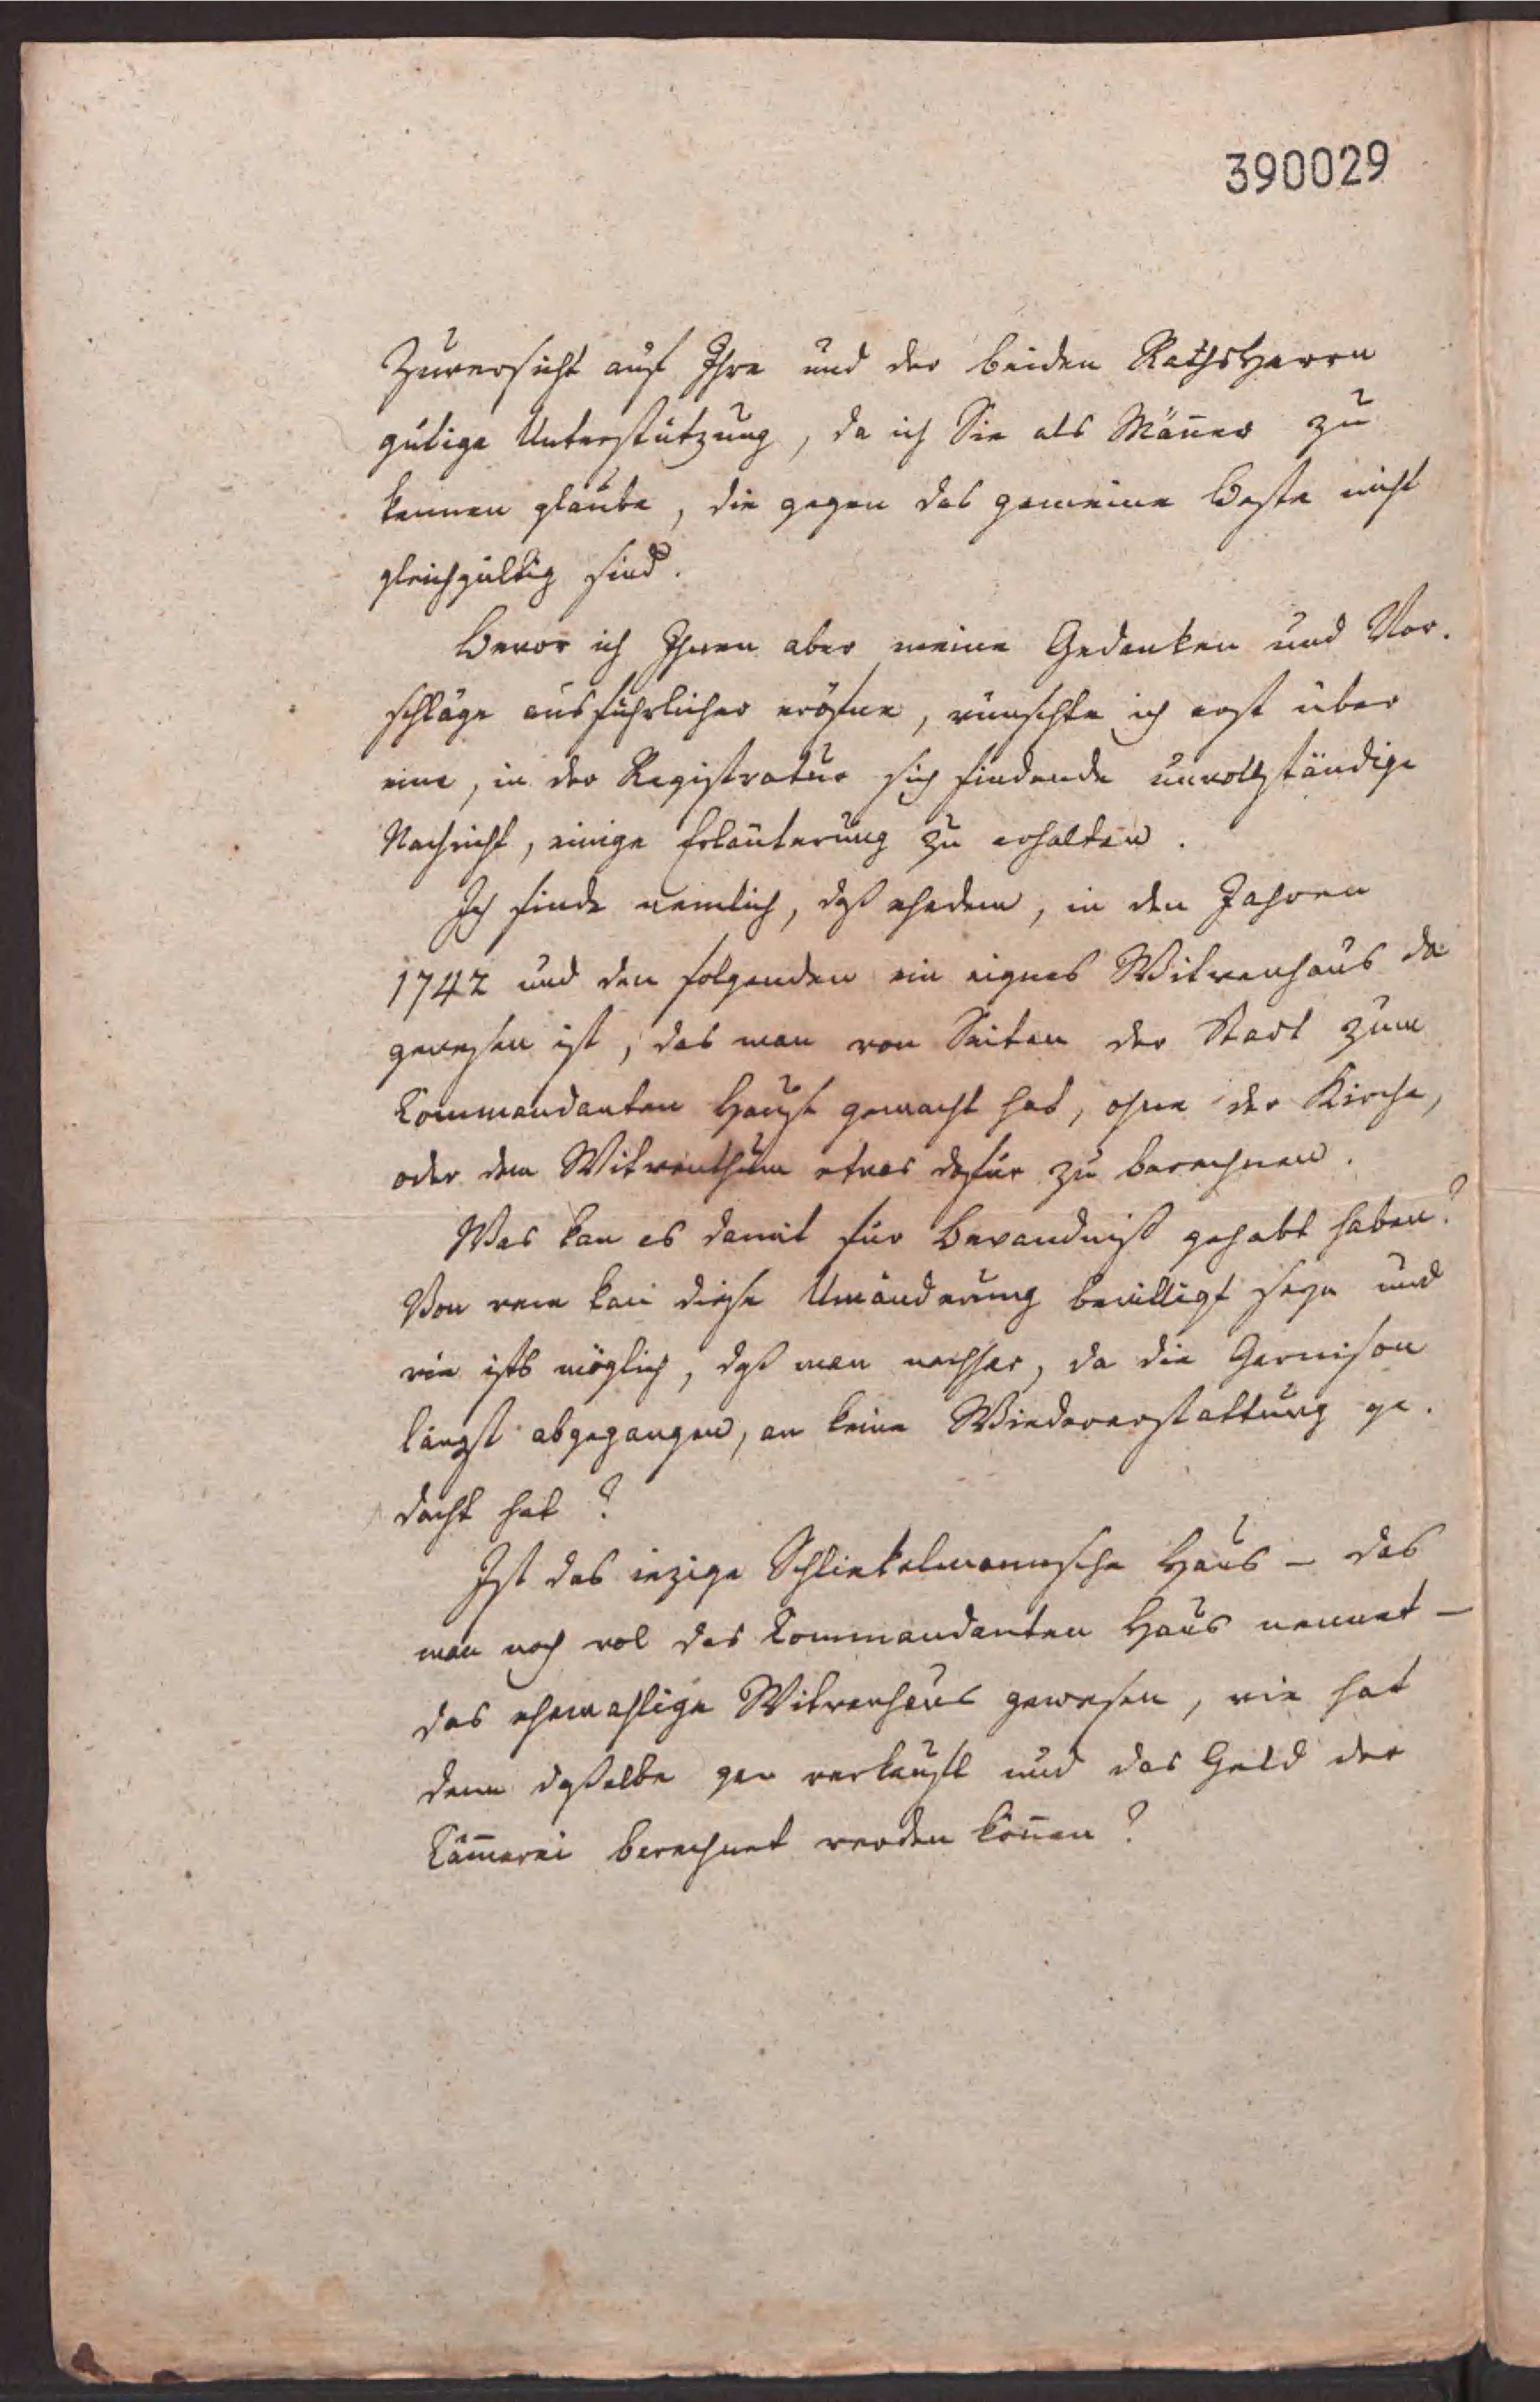 390029
Zuversicht auf Ihre und der beiden RathsHerrn
gütige Unterstützung, da ich Sie als Mäñer zu
kennen glaube, die gegen das gemeine Beste nicht
gleichgültig sind.
Bevor ich Ihnen aber meine Gedanken und Vor-
schläge ausführlicher eröfne, wünschte ich erst über
eine, in der Registratur sich findende unvollständige
Nachricht, einige Erläuterung zu erhalten.
Ich finde nemlich, daß ehedem, in den Jahren
1742 und den folgenden ein eignes Witwenhaus da
gewesen ist, das man von Seiten der Stadt zum
Commandanten Hause gemacht hat, ohne der Kirche,
oder dem Witwenthum etwas dafür zu berechnen.
Was kan es damit für Bewandniß gehabt haben?
Von wem kan diese Umänderung bewilligt seyn und
wie ists möglich, daß man nachher, da die Garnison
längst abgegangen, an keine Wiedererstattung ge-
dacht hat?
Ist das iezige Schliekelmannsche Haus – das
man noch wol das Commandanten Haus nennet –
das ehemahlige Witwenhaus gewesen, wie hat
denn daßelbe gar verkauft und das Geld der
Cäm̄erei berechnet werden köñen?